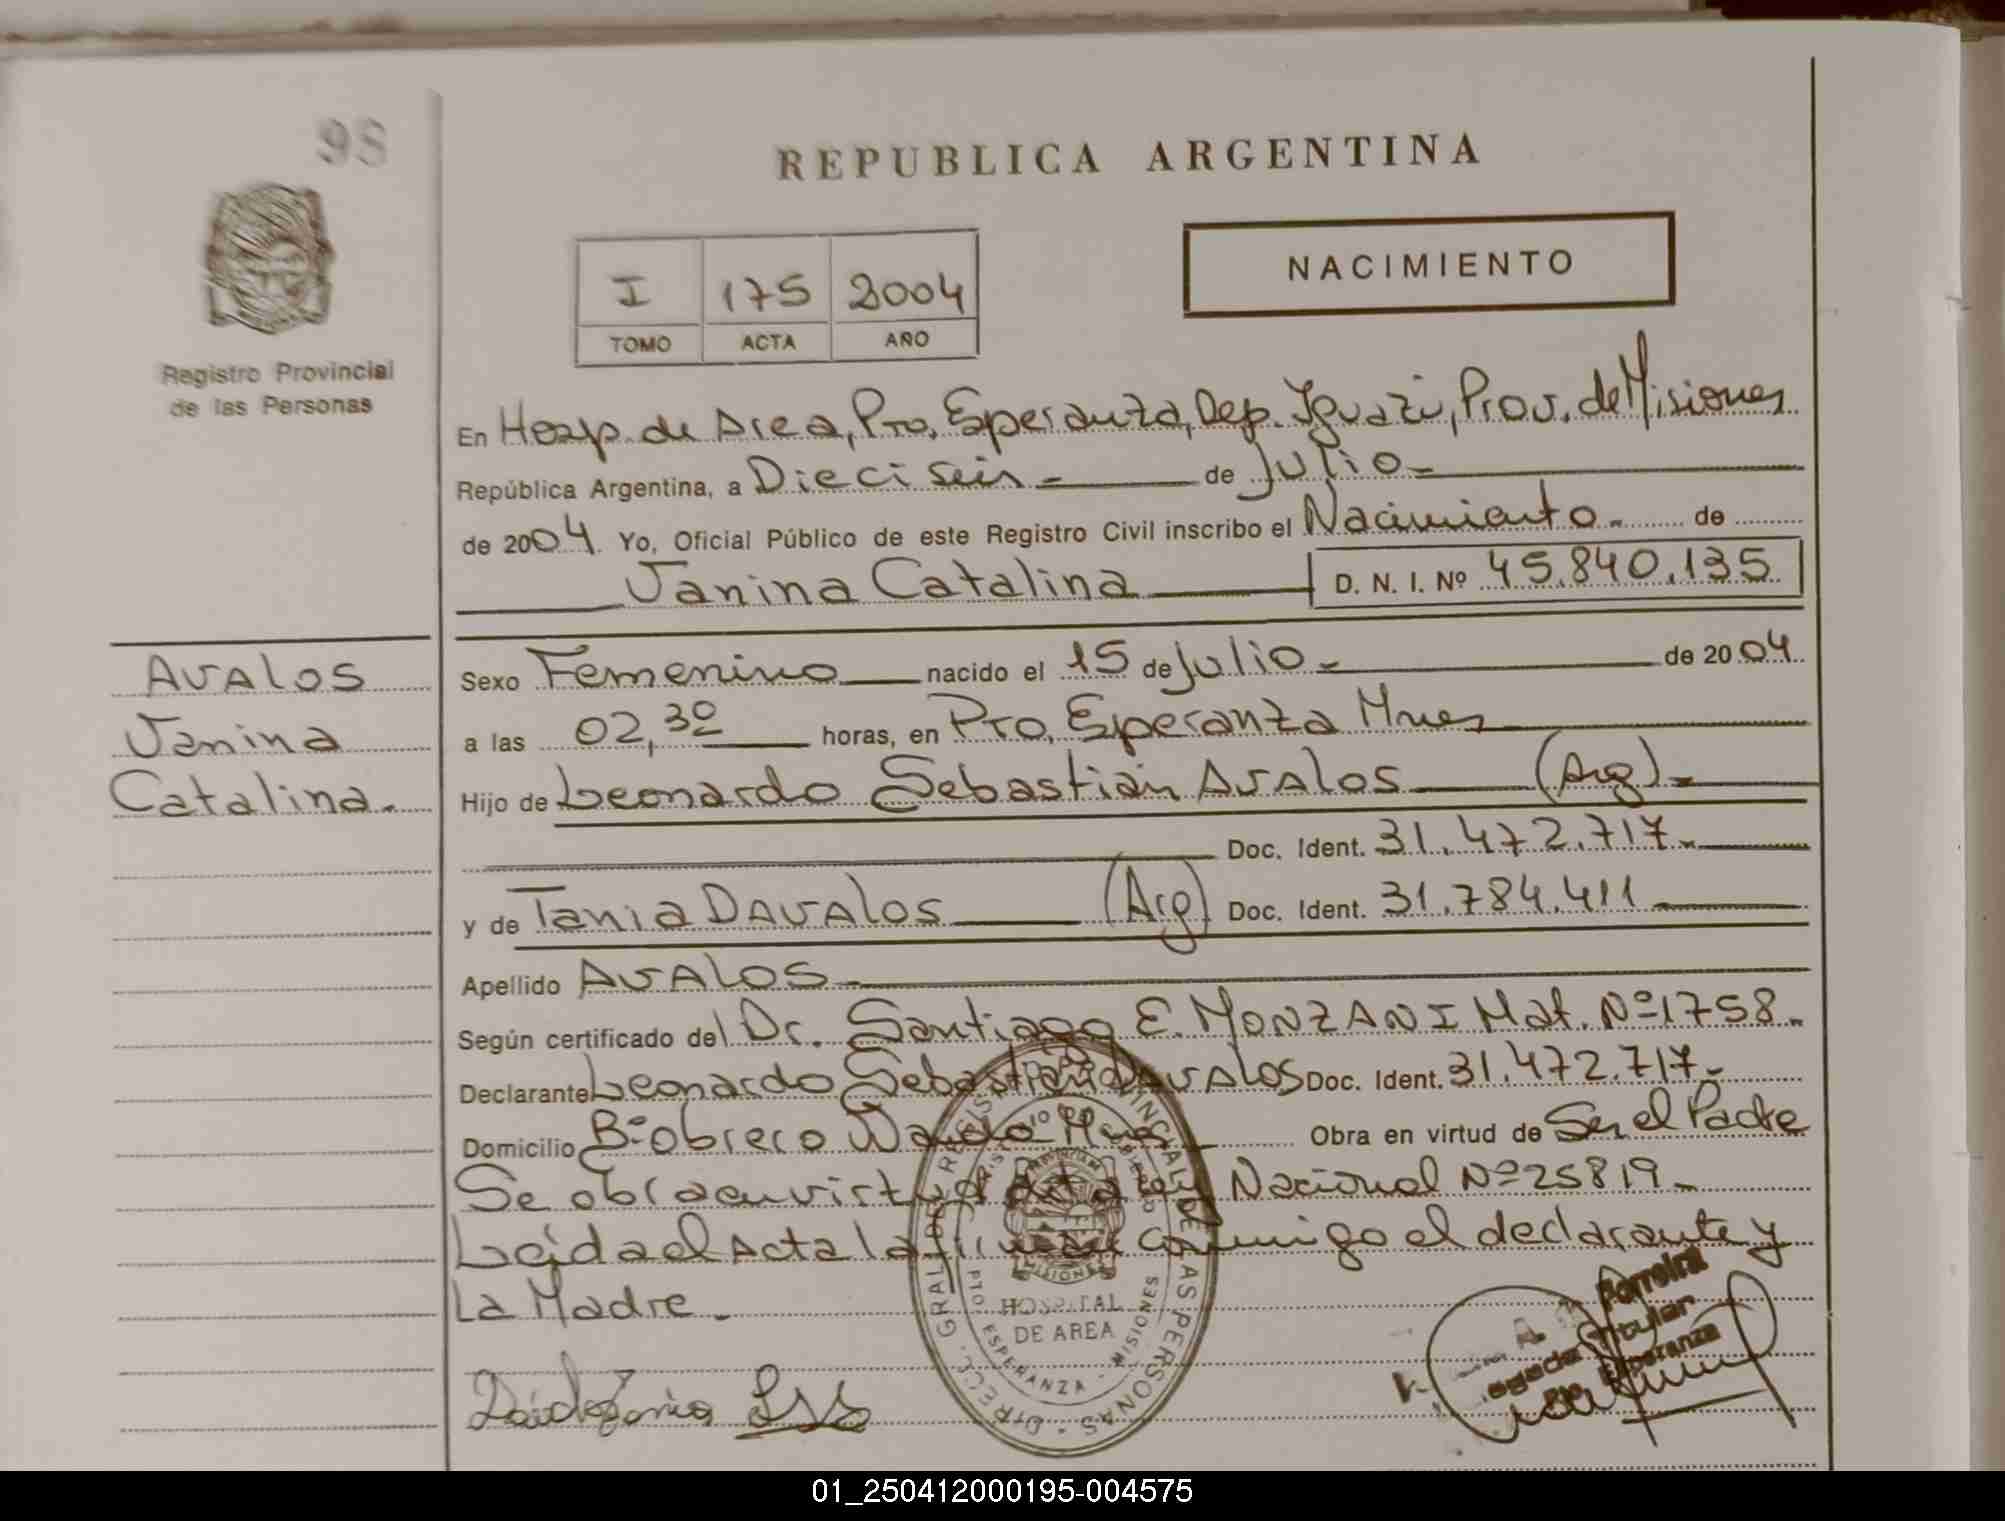 98
REPUBLICA ARGENTINA
I 175 2004
TOMO ACTA AÑO
NACIMIENTO
Registro Provincial
de las Personas
En Hosp. de Area, Pto. Esperanza, Dep. Iguazú, Prov. de Misiones
República Argentina, a Dieciseis - de Julio -
de 2004. Yo, Oficial Público de este Registro Civil inscribo el Nacimiento - de
Janina Catalina D. N. I. Nº 45.840.135
AVALOS
Janina
Catalina.
Sexo Femenino nacido el 15 de Julio - de 2004
a las 02,30 horas, en Pto. Esperanza Mnes
Hijo de Leonardo Sebastián AVALOS (Arg) -
Doc. Ident. 31.472.717 -
y de Tania DAVALOS (Arg) Doc. Ident. 31.784.411
Apellido AVALOS -
Según certificado del Dr. Santiago E. MONZANI Mat. Nº 1758 -
Declarante Leonardo Sebastián AVALOS Doc. Ident. 31.472.717 -
Domicilio Bº Obrero Wanda Mnes Obra en virtud de Ser el Padre
Se obra en virtud de la Ley Nacional Nº 25819 -
Leída el Acta la firman conmigo el declarante y
La Madre -
DIRECC. GRAL. DEL REGISTRO PROVINCIAL DE LAS PERSONAS
MISIONES
HOSPITAL
DE AREA
PTO ESPERANZA - MISIONES
Ferreira
Titular
Pto Esperanza
01_250412000195-004575